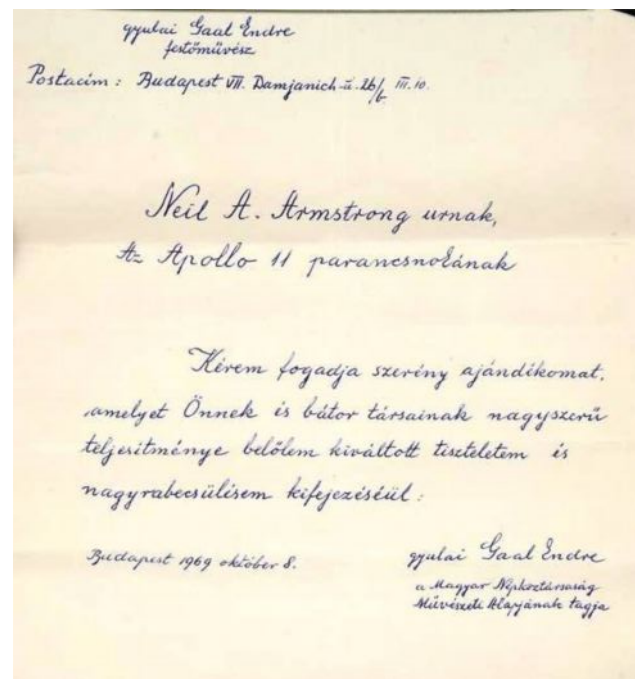 gyulai Gaal Endre
festőművész
Postacím : Budapest VII. Damjanich-u. 26/b III. 10.
Neil A. Armstrong urnak,
Az Apollo 11 parancsnokának
Kérem fogadja szerény ajándékomat,
amelyet Önnek és bátor társainak nagyszerű
teljesitménye belőlem kiváltott tiszteletem és
nagyrabecsülésem kifejezéséül :
Budapest 1969 október 8.
gyulai Gaal Endre
a Magyar Népköztársaság
Művészeti Alapjának tagja